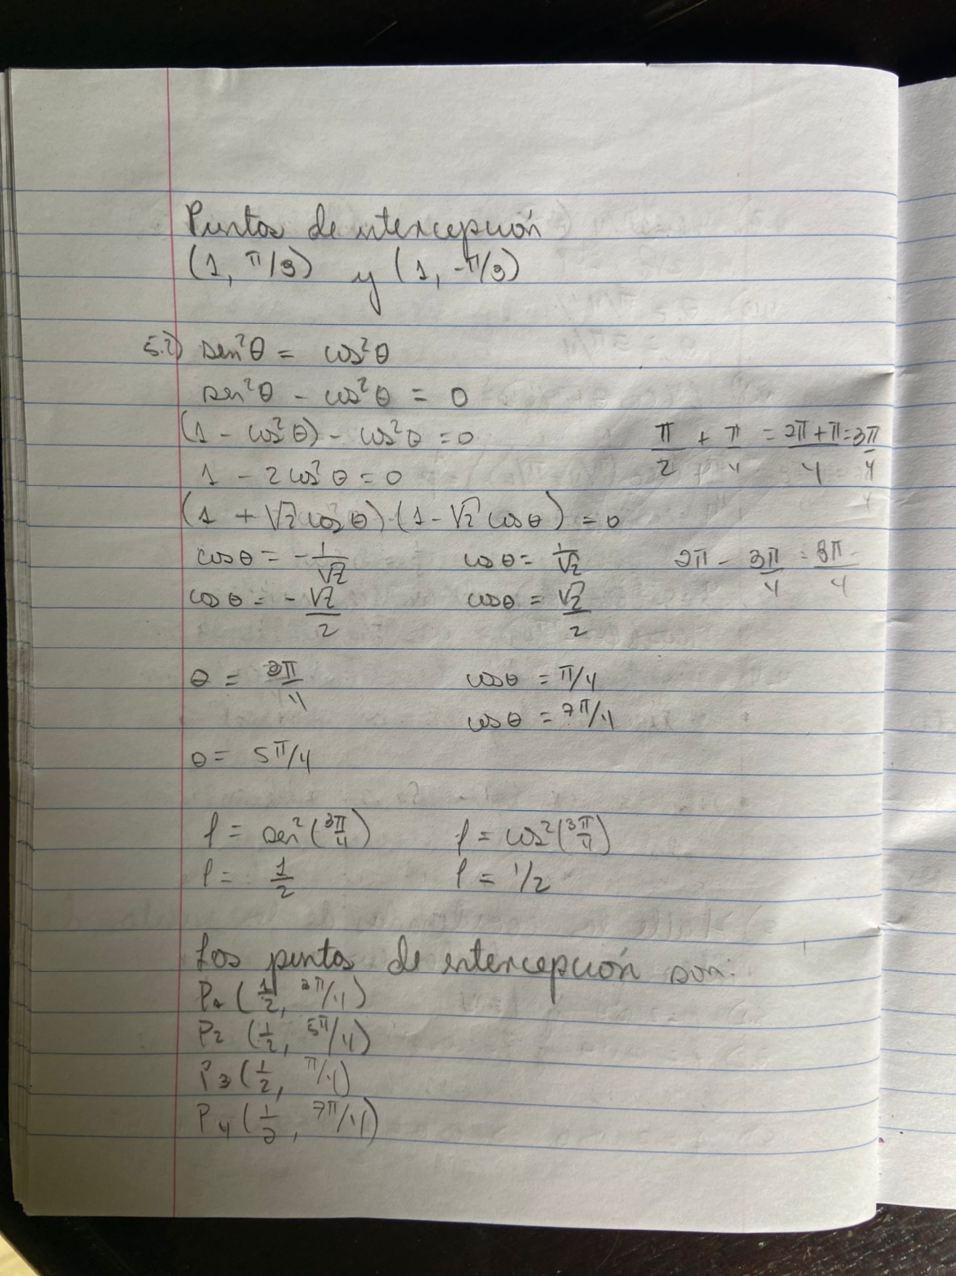 Puntos de intercepción
(1, π/3) y (1, -π/3)
5.2) sen²θ = cos²θ
sen²θ - cos²θ = 0
(1 - cos²θ) - cos²θ = 0
π/2 + π/4 = 2π+π/4 = 3π/4
1 - 2cos²θ = 0
(1 + √2 cosθ)·(1 - √2 cosθ) = 0
cosθ = -1/√2 cosθ = 1/√2 2π - 3π/4 = 8π/4
cosθ = -√2/2 cosθ = √2/2
θ = 3π/4 cosθ = π/4
cosθ = 7π/4
θ = 5π/4
f = sen²(3π/4) f = cos²(3π/4)
f = 1/2 f = 1/2
Los puntos de intercepción son:
P1 (1/2, 3π/4)
P2 (1/2, 5π/4)
P3 (1/2, π/4)
P4 (1/2, 7π/4)